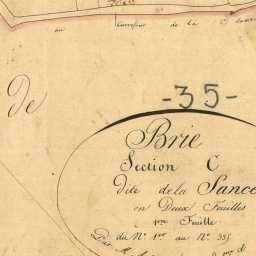 au Carrefour de la
De
-35-
Brie
Section C
dite de la Sance
en Deux Feuilles
1ere Feuille
Du N° 1er au N° 335
Par M.